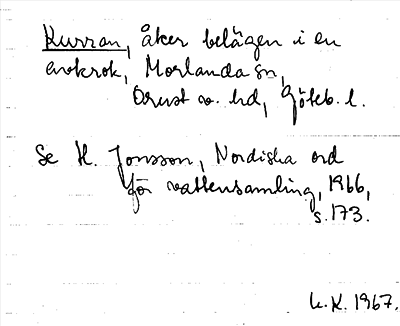 Kurran, åker belägen i en
avkrok, Morlanda sn,
Orust v. hd, Göteb. l.
Se H. Jonsson, Nordiska ord
för vattensamling, 1966,
s. 173.
U.K. 1967.